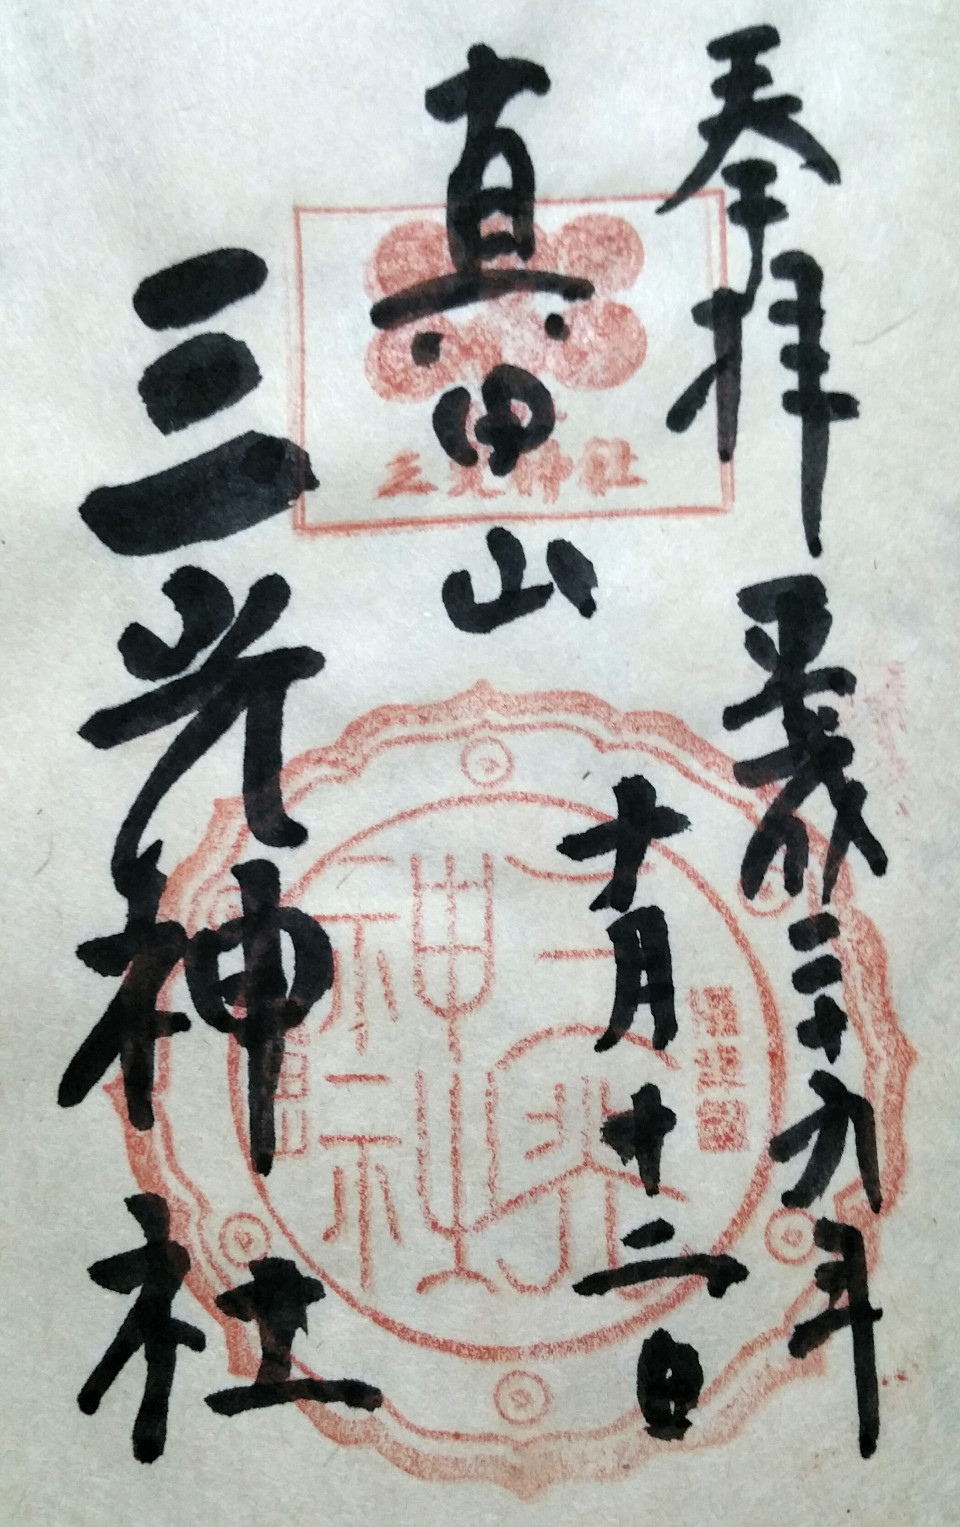 奉拝
平成二十九年
十月十二日
真田山
三光神社
三光神社
三光神社